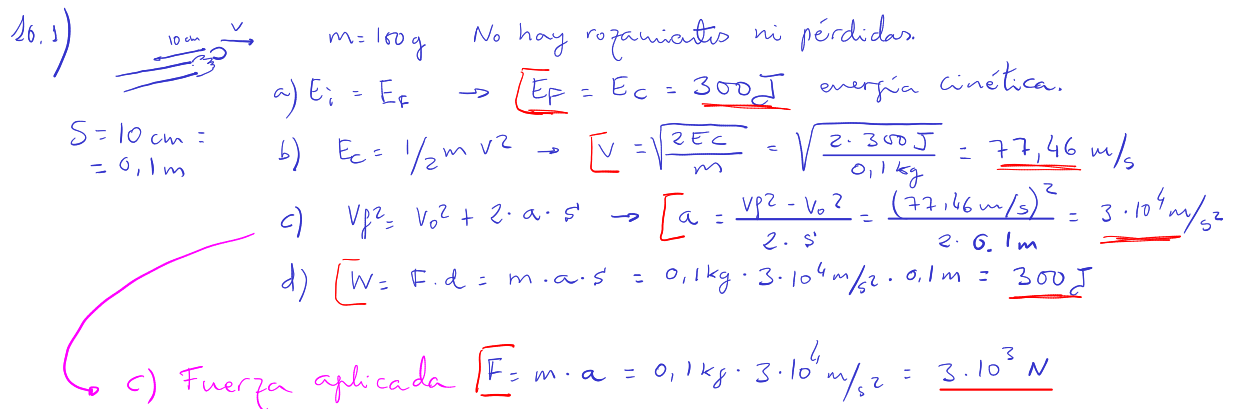 16.1) 10 cm V m = 100 g No hay rozamientos ni pérdidas.
a) Ei = EF → EF = EC = 300 J energía cinética.
S = 10 cm =
= 0,1 m
b) Ec = 1/2 m v² → V = √(2 Ec / m) = √(2 · 300 J / 0,1 kg) = 77,46 m/s
c) Vf² = Vo² + 2 · a · s → a = (Vf² - Vo²) / (2 · s) = (77,46 m/s)² / (2 · 0,1 m) = 3 · 10⁴ m/s²
d) W = F · d = m · a · s = 0,1 kg · 3 · 10⁴ m/s² · 0,1 m = 300 J
c) Fuerza aplicada F = m · a = 0,1 kg · 3 · 10⁴ m/s² = 3 · 10³ N